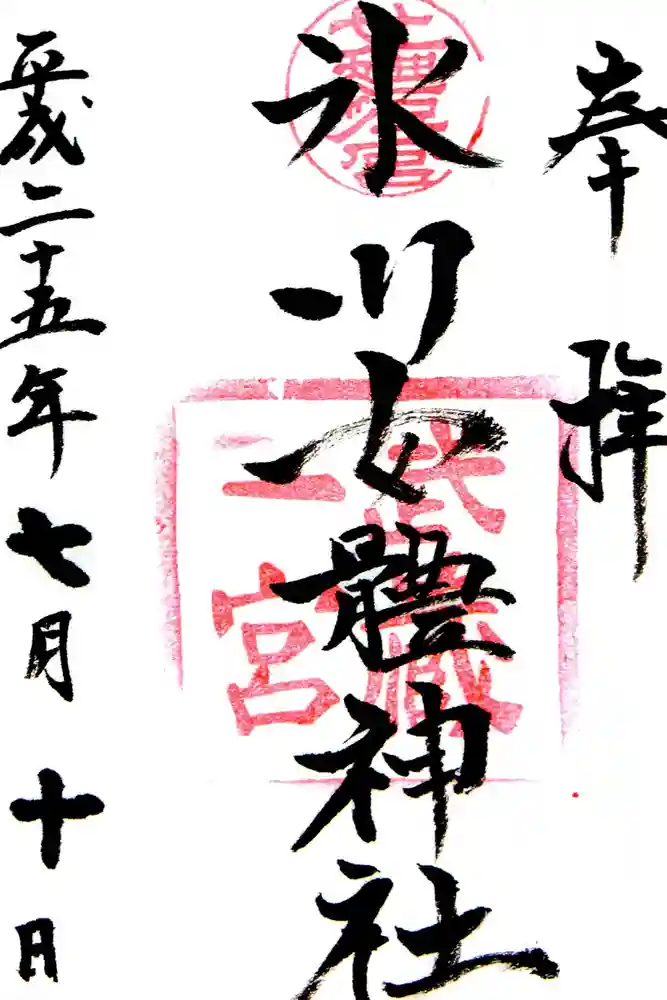 奉拝
氷川女體神社
武蔵
一宮
平成二十五年七月十日